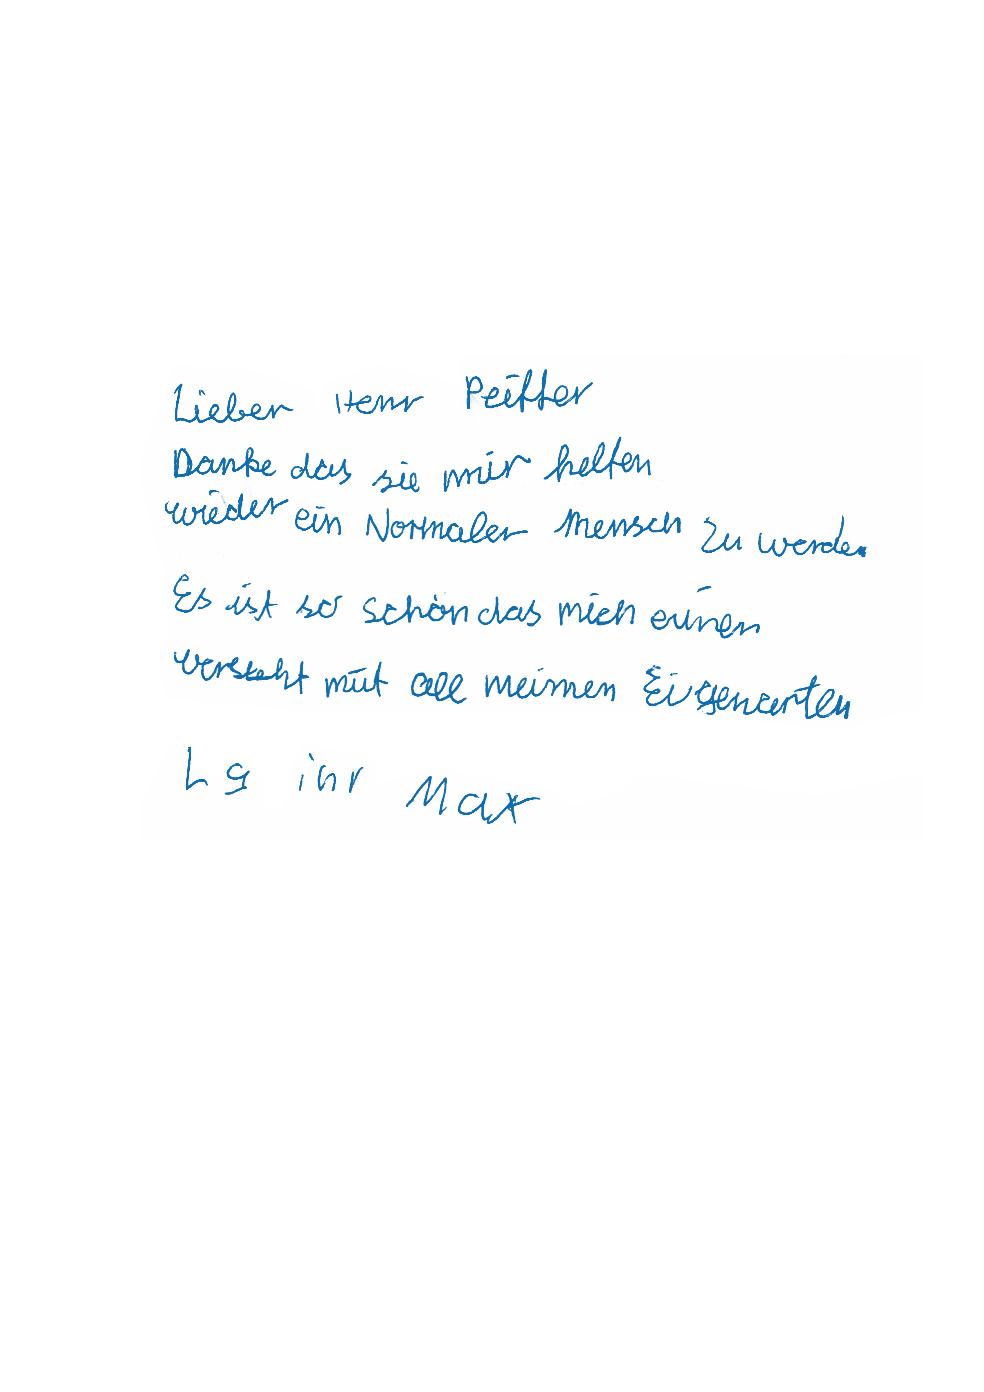 Lieber Herr Peiffer
Danke das sie mir helfen
wieder ein Normaler Mensch zu werden
Es ist so schön das mich einen
versteht mit all meinen Eigenarten
Lg ihr Max